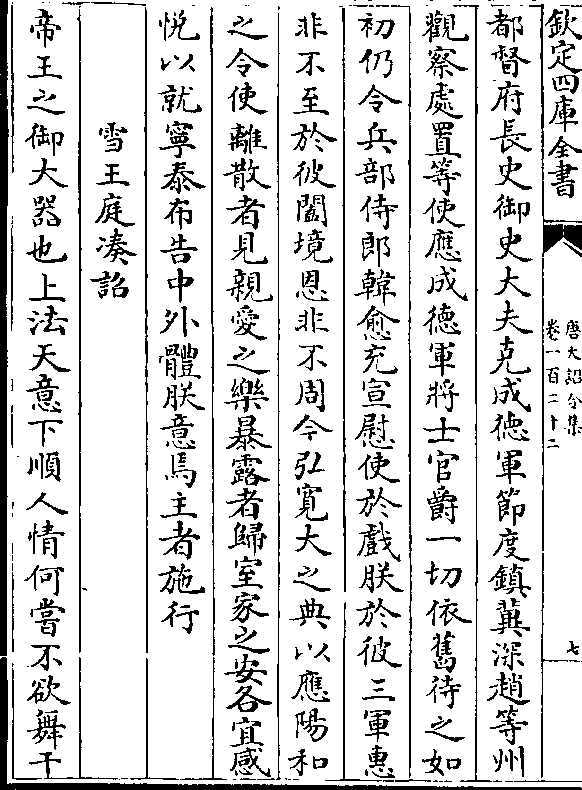 欽定四庫全書
唐大詔令集
卷一百二十二
七
都督府長史御史大夫克成德軍節度鎮冀深趙等州
觀察處置等使應成德軍將士官爵一切依舊待之如
初仍令兵部侍郎韓愈充宣慰使於戲朕於彼三軍惠
非不至於彼闔境恩非不周今弘寛大之典以應陽和
之令使離散者見親愛之樂暴露者歸室家之安各宜感
悦以就寧泰布告中外體朕意焉主者施行
雪王庭湊詔
帝王之御大器也上法天意下順人情何嘗不欲舞干